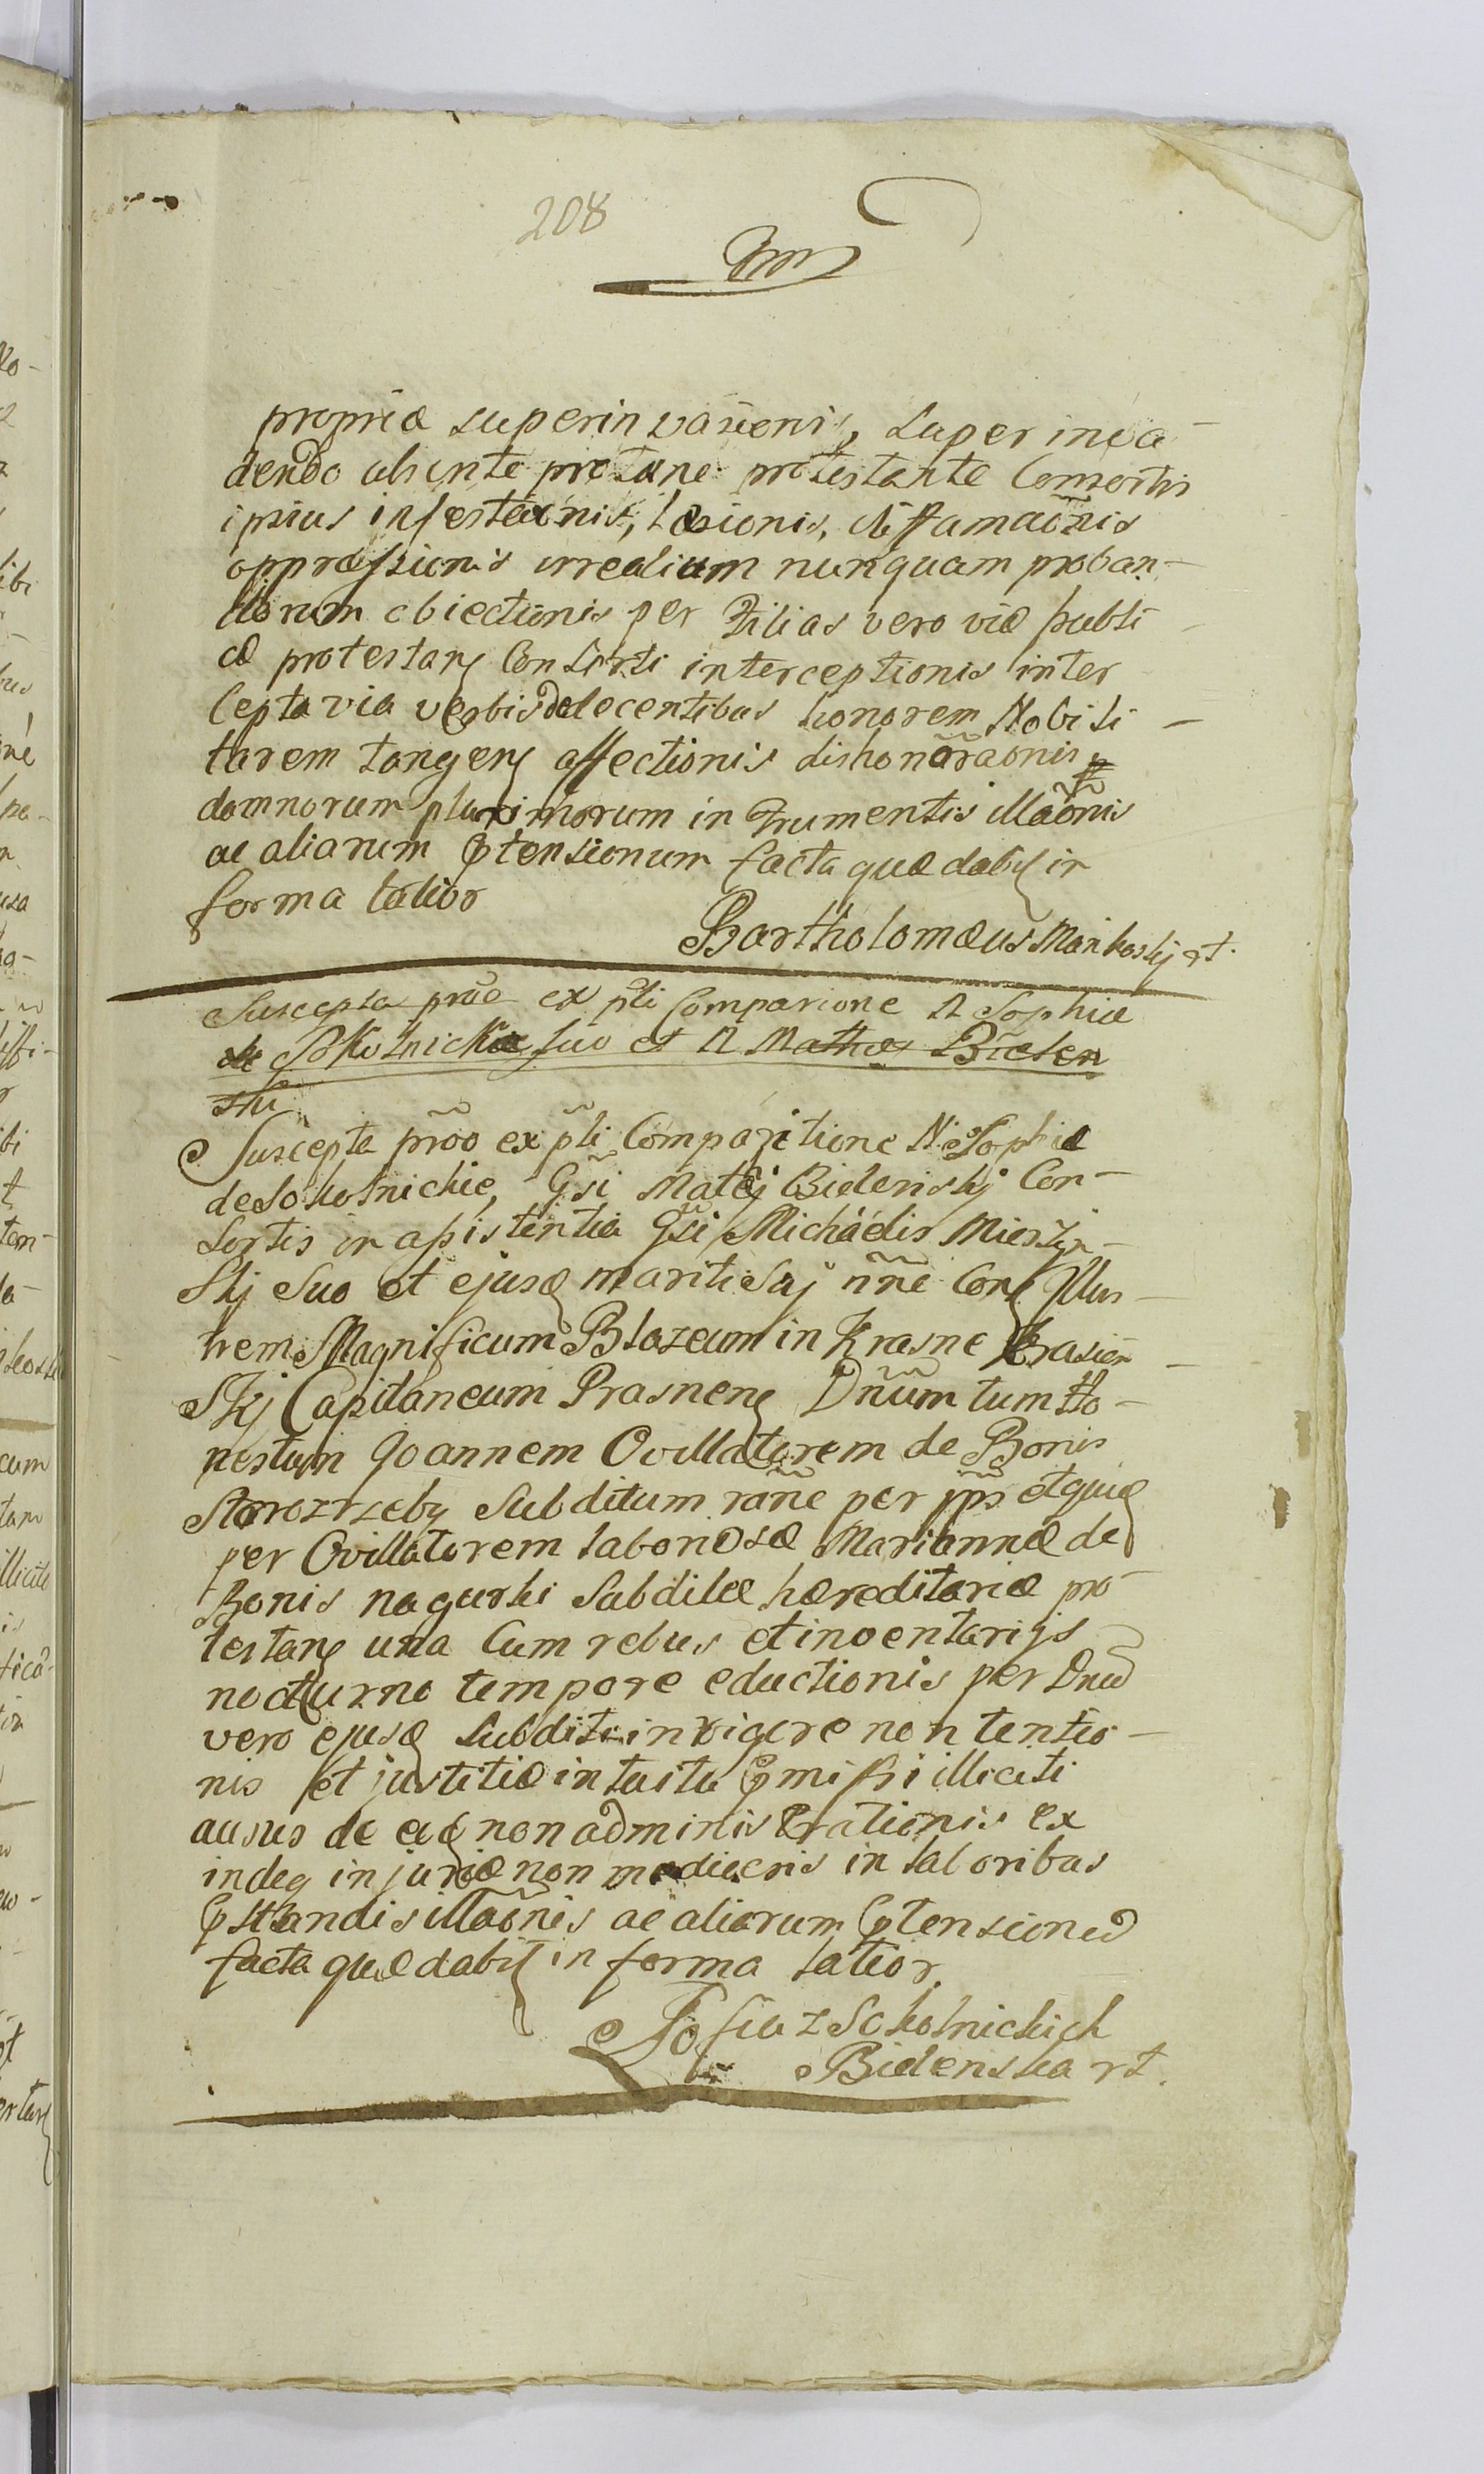 208
propriæ superinvasionis, super inva-
dendo absente protunc protestante Consortis
ipsius infestaõnis, læsionis, diffamaõnis
oppressionis irrealium nunquam proban-
dorum obiectionis per Filias vero viæ publi-
cæ protestan Consorti interceptionis inter
cepta via verbis dedecentibus honorem Nobili-
tarem tangen affectionis dishonõraonis
damnorum plurimorum in Frumentis illaõnis
ac aliarum ptensionum facta quæ dabit in
forma latior
Bartholomæus Mankoskj rt.
Suscepta prãõ ex pli Comparione N Sophiæ
de Sokolnickie suo et N Mathæ Bielen
ski
Suscepta prõo ex pli Comparitione N. Sophiæ
de Sokolnickie, Gsi Matej Bielenskj Con-
sortis in assistentia Gsi Michaelis
Skj suo et ejusd mariti suj nñe Con Illus-
trem Magnificum Blazeum in Krasne Krasiĩn-
Skj Capitaneum Prasnen Dnũm tum Ho-
nestum Joannem Ovillatorem de Bonis
Subditum rañe per
per Ovillatorem laboriosæ Mariannæ de
Bonis nagurki Subditæ hæreditariæ pro-
testan una Cum rebus et inventarijs
nocturno tempore eductionis per Dnũ
vero ejusd subditi in vigore non tentio-
nis et justitiæ intuitu pmissi illiciti
ausus de eod non administrationis ex
indeq injuriæ non mediocris in laboribus
pstandis illaõnis ac aliarum ptensionũ
facta quæ dabit in forma latior.
Zofia z Sokolnickich
Bielenska rt.